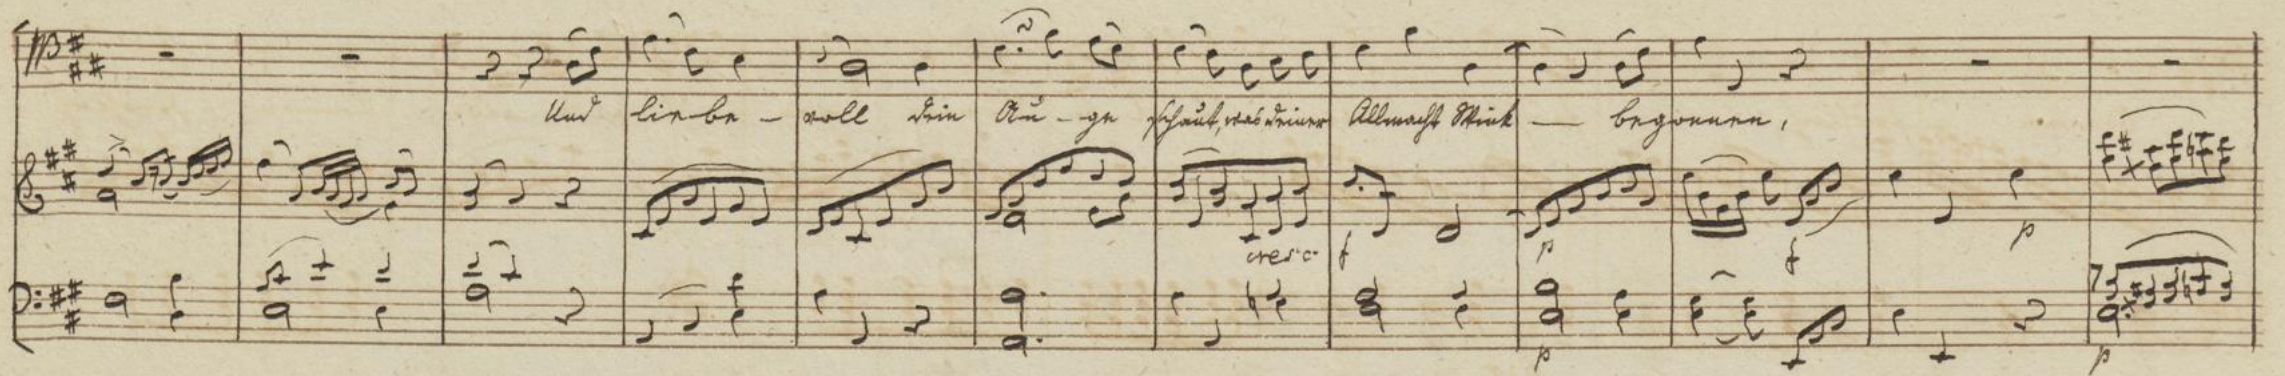 Und liebe - voll dein Au - ge schaut, was deiner Allmacht Wink — begonnen,
cresc f p f p
p p